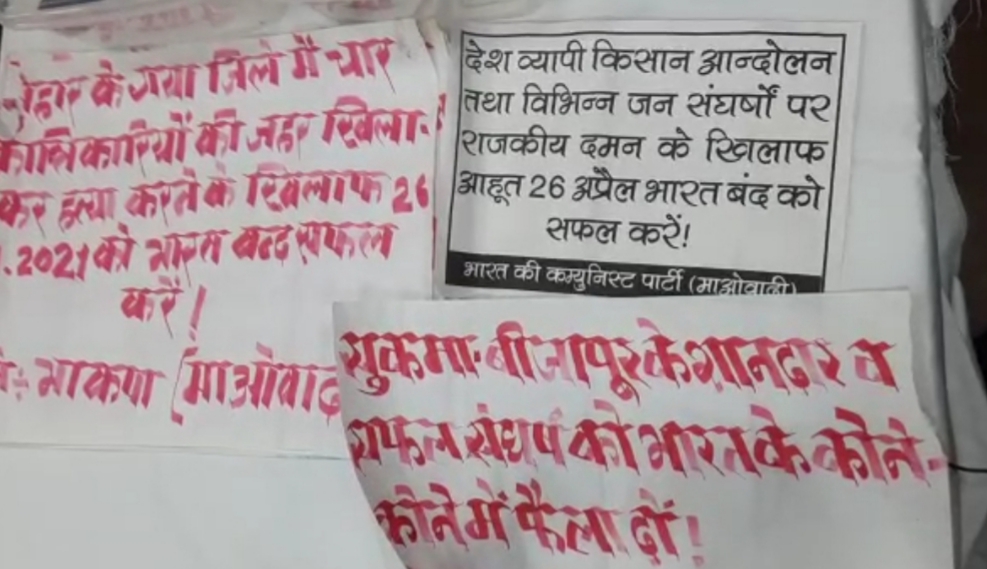 बिहार के गया जिले में चार
क्रान्तिकारियों की जहर खिला-
कर हत्या करने के खिलाफ 26
.2021 को भारत बन्द सफल
करें!
भाकपा (माओवाद
देश व्यापी किसान आन्दोलन
तथा विभिन्न जन संघर्षों पर
राजकीय दमन के खिलाफ
आहूत 26 अप्रैल भारत बंद को
सफल करें!
भारत की कम्युनिस्ट पार्टी (माओवादी)
सुकमा-बीजापूर के शानदार व
सफल संघर्ष को भारत के कोने-
कोने में फैला दों!